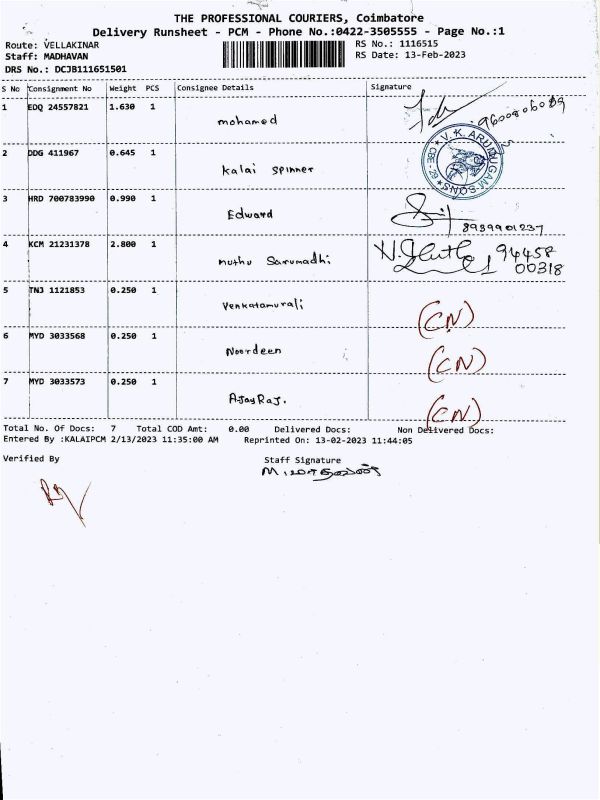 THE PROFESSIONAL COURIERS, Coimbatore
Delivery Runsheet - PCM - Phone No.:0422-3505555 - Page No.:1
Route: VELLAKINAR RS No.: 1116515
Staff: MADHAVAN RS Date: 13-Feb-2023
DRS No.: DCJB111651501
S No Consignment No Weight PCS Consignee Details Signature
1 EDQ 24557821 1.630 1 mohamed 9600806089
2 DDG 411967 0.645 1 Kalai spinner V.K. ARUMUGAM & SONS CBE-29
3 HRD 700783990 0.990 1 Edward 8939901237
4 KCM 21231378 2.800 1 muthu Sarumadhi 94458 00318
5 TNJ 1121853 0.250 1 Venkatamurali (CN)
6 MYD 3033568 0.250 1 Noordeen (CN)
7 MYD 3033573 0.250 1 AjayRaj. (CN)
Total No. Of Docs: 7 Total COD Amt: 0.00 Delivered Docs: Non Delivered Docs:
Entered By :KALAIPCM 2/13/2023 11:35:00 AM Reprinted On: 13-02-2023 11:44:05
Verified By Staff Signature
M. மாதவன்